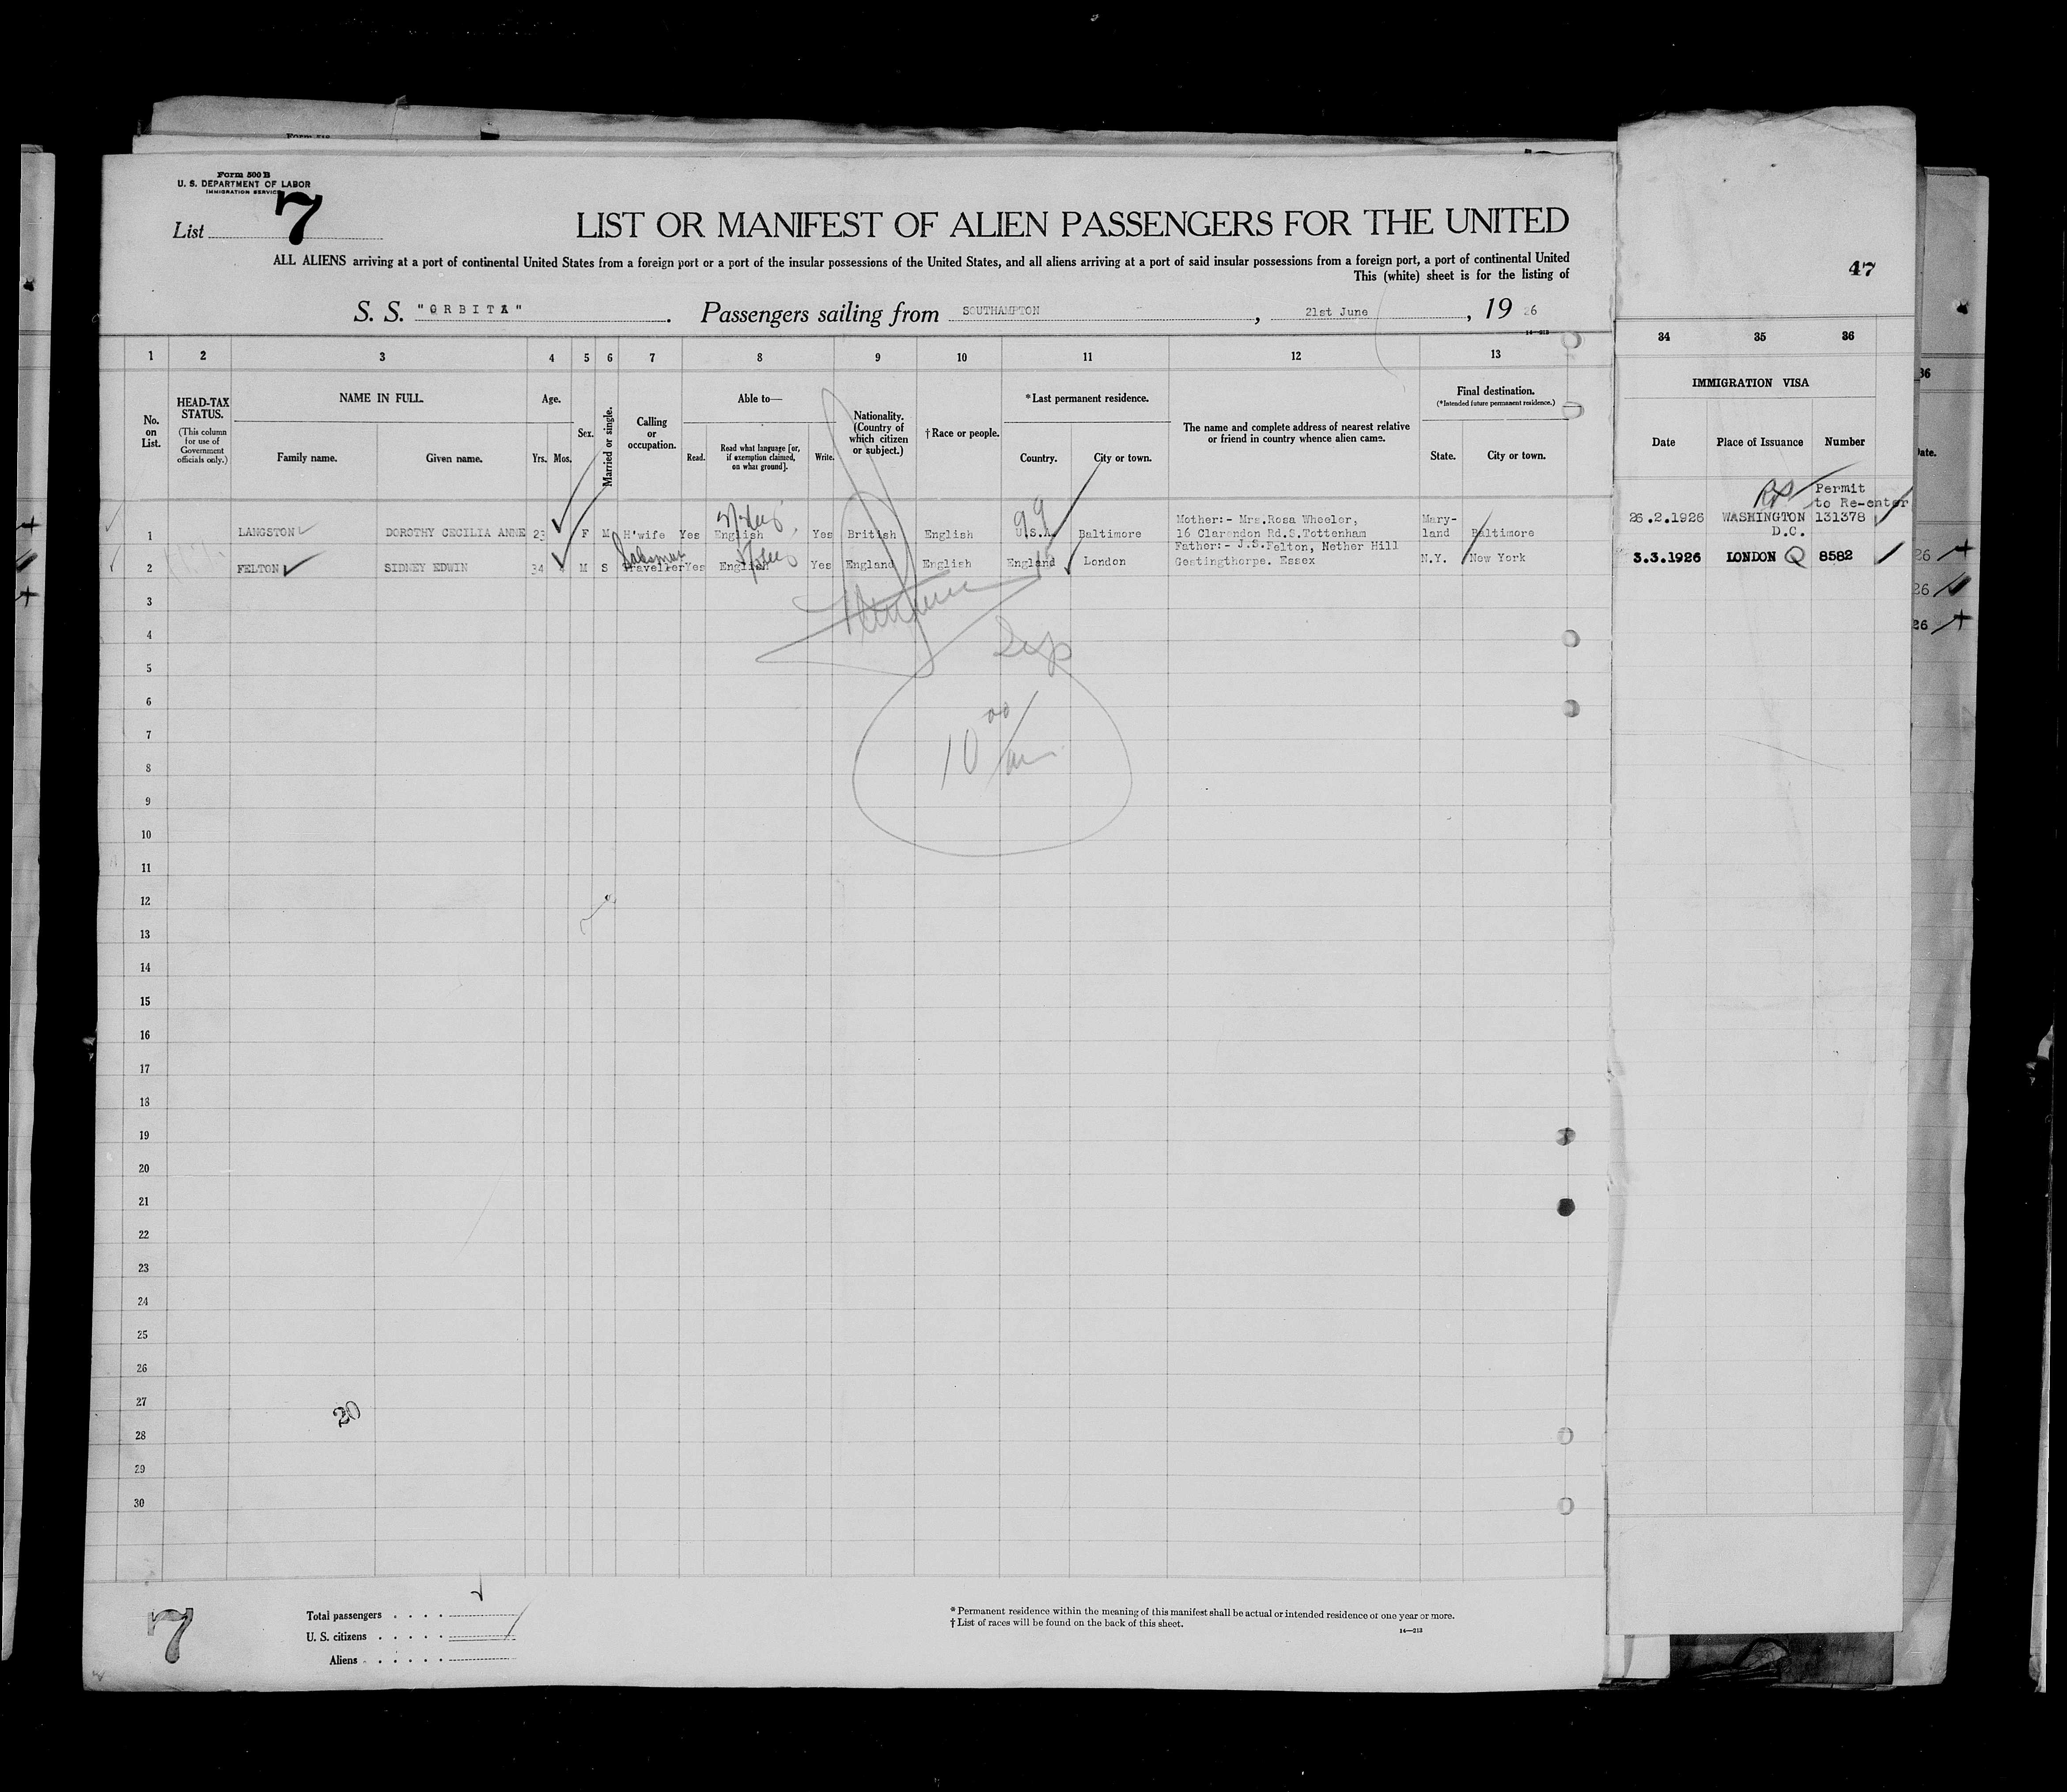 Form 500 B
U. S. DEPARTMENT OF LABOR
IMMIGRATION SERVICE
List 7
LIST OR MANIFEST OF ALIEN PASSENGERS FOR THE UNITED
ALL ALIENS arriving at a port of continental United States from a foreign port or a port of the insular possessions of the United States, and all aliens arriving at a port of said insular possessions from a foreign port, a port of continental United
This (white) sheet is for the listing of
47
S. S. "ORBITA". Passengers sailing from SOUTHAMPTON, 21st June, 19 26
1 2 3 4 5 6 7 8 9 10 11 12 13 34 35 36
No. on List.
HEAD-TAX STATUS.
(This column for use of Government officials only.)
NAME IN FULL.
Family name. Given name.
Age.
Yrs. Mos.
Sex.
Married or single.
Calling or occupation.
Able to—
Read. Read what language [or, if exemption claimed, on what ground]. Write.
Nationality. (Country of which citizen or subject.)
†Race or people.
*Last permanent residence.
Country. City or town.
The name and complete address of nearest relative or friend in country whence alien came.
Final destination.
(*Intended future permanent residence.)
State. City or town.
IMMIGRATION VISA
Date Place of Issuance Number
1 LANGSTON DOROTHY CECILIA ANNE 23 F M H'wife Yes English Yes British English U.S.A. Baltimore Mother:- Mrs.Rosa Wheeler, 16 Clarendon Rd.S.Tottenham Mary-land Baltimore 26.2.1926 WASHINGTON D.C. Permit to Re-enter 131378
2 FELTON SIDNEY EDWIN 34 4 M S Salesman Traveller Yes English Yes England English England London Father:- J.S.Felton, Nether Hill Gestingthorpe. Essex N.Y. New York 3.3.1926 LONDON Q 8582
3
4
5
6
7
8
9
10
11
12
13
14
15
16
17
18
19
20
21
22
23
24
25
26
27
28
29
30
10 00
20
7
Total passengers
U. S. citizens
Aliens
* Permanent residence within the meaning of this manifest shall be actual or intended residence of one year or more.
† List of races will be found on the back of this sheet.
14—213